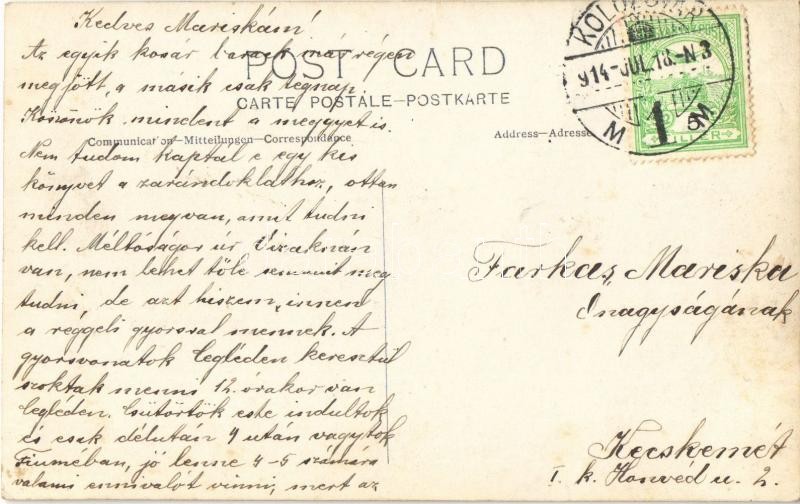 Kedves Mariskám!
Az egyik kosár barack már régen
megjött, a másik csak tegnap.
Köszönök mindent a meggyet is.
POST CARD
CARTE POSTALE–POSTKARTE
Communication–Mitteilungen–Correspondance
Address–Adresse
KOLOZSVÁR
914-JUL.18-N3
1
M M
5
FILLÉR
Nem tudom kaptál e egy kis
könyvet a zarándoklathoz, ottan
minden megvan, amit tudni
kell. Méltóságos úr Vizaknán
van, nem lehet tőle semmit meg
tudni, de azt hiszem, innen
a reggeli gyorsval mennek. A
gyorsvonatok Cegléden keresztül
szoktak menni 12 órakor van
Cegléden. Csütörtök este indultok
és csak délután 4 után vagytok
Fiuméban, jó lenne 4-5 számára
valami ennivalót vinni, mert az
Farkas Mariska
Őnagyságának
Kecskemét
I. k. Honvéd u. 2.